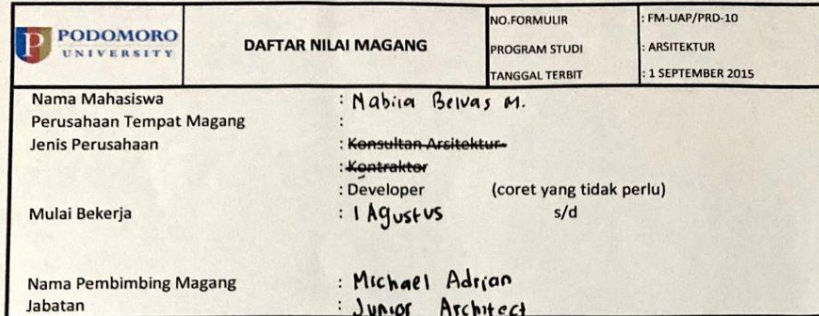 PODOMORO
UNIVERSITY
DAFTAR NILAI MAGANG
NO.FORMULIR : FM-UAP/PRD-10
PROGRAM STUDI : ARSITEKTUR
TANGGAL TERBIT : 1 SEPTEMBER 2015
Nama Mahasiswa : Nabila Belvas M.
Perusahaan Tempat Magang :
Jenis Perusahaan : Konsultan Arsitektur
: Kontraktor
: Developer (coret yang tidak perlu)
Mulai Bekerja : 1 Agustus s/d
Nama Pembimbing Magang : Michael Adrian
Jabatan : Junior Architect